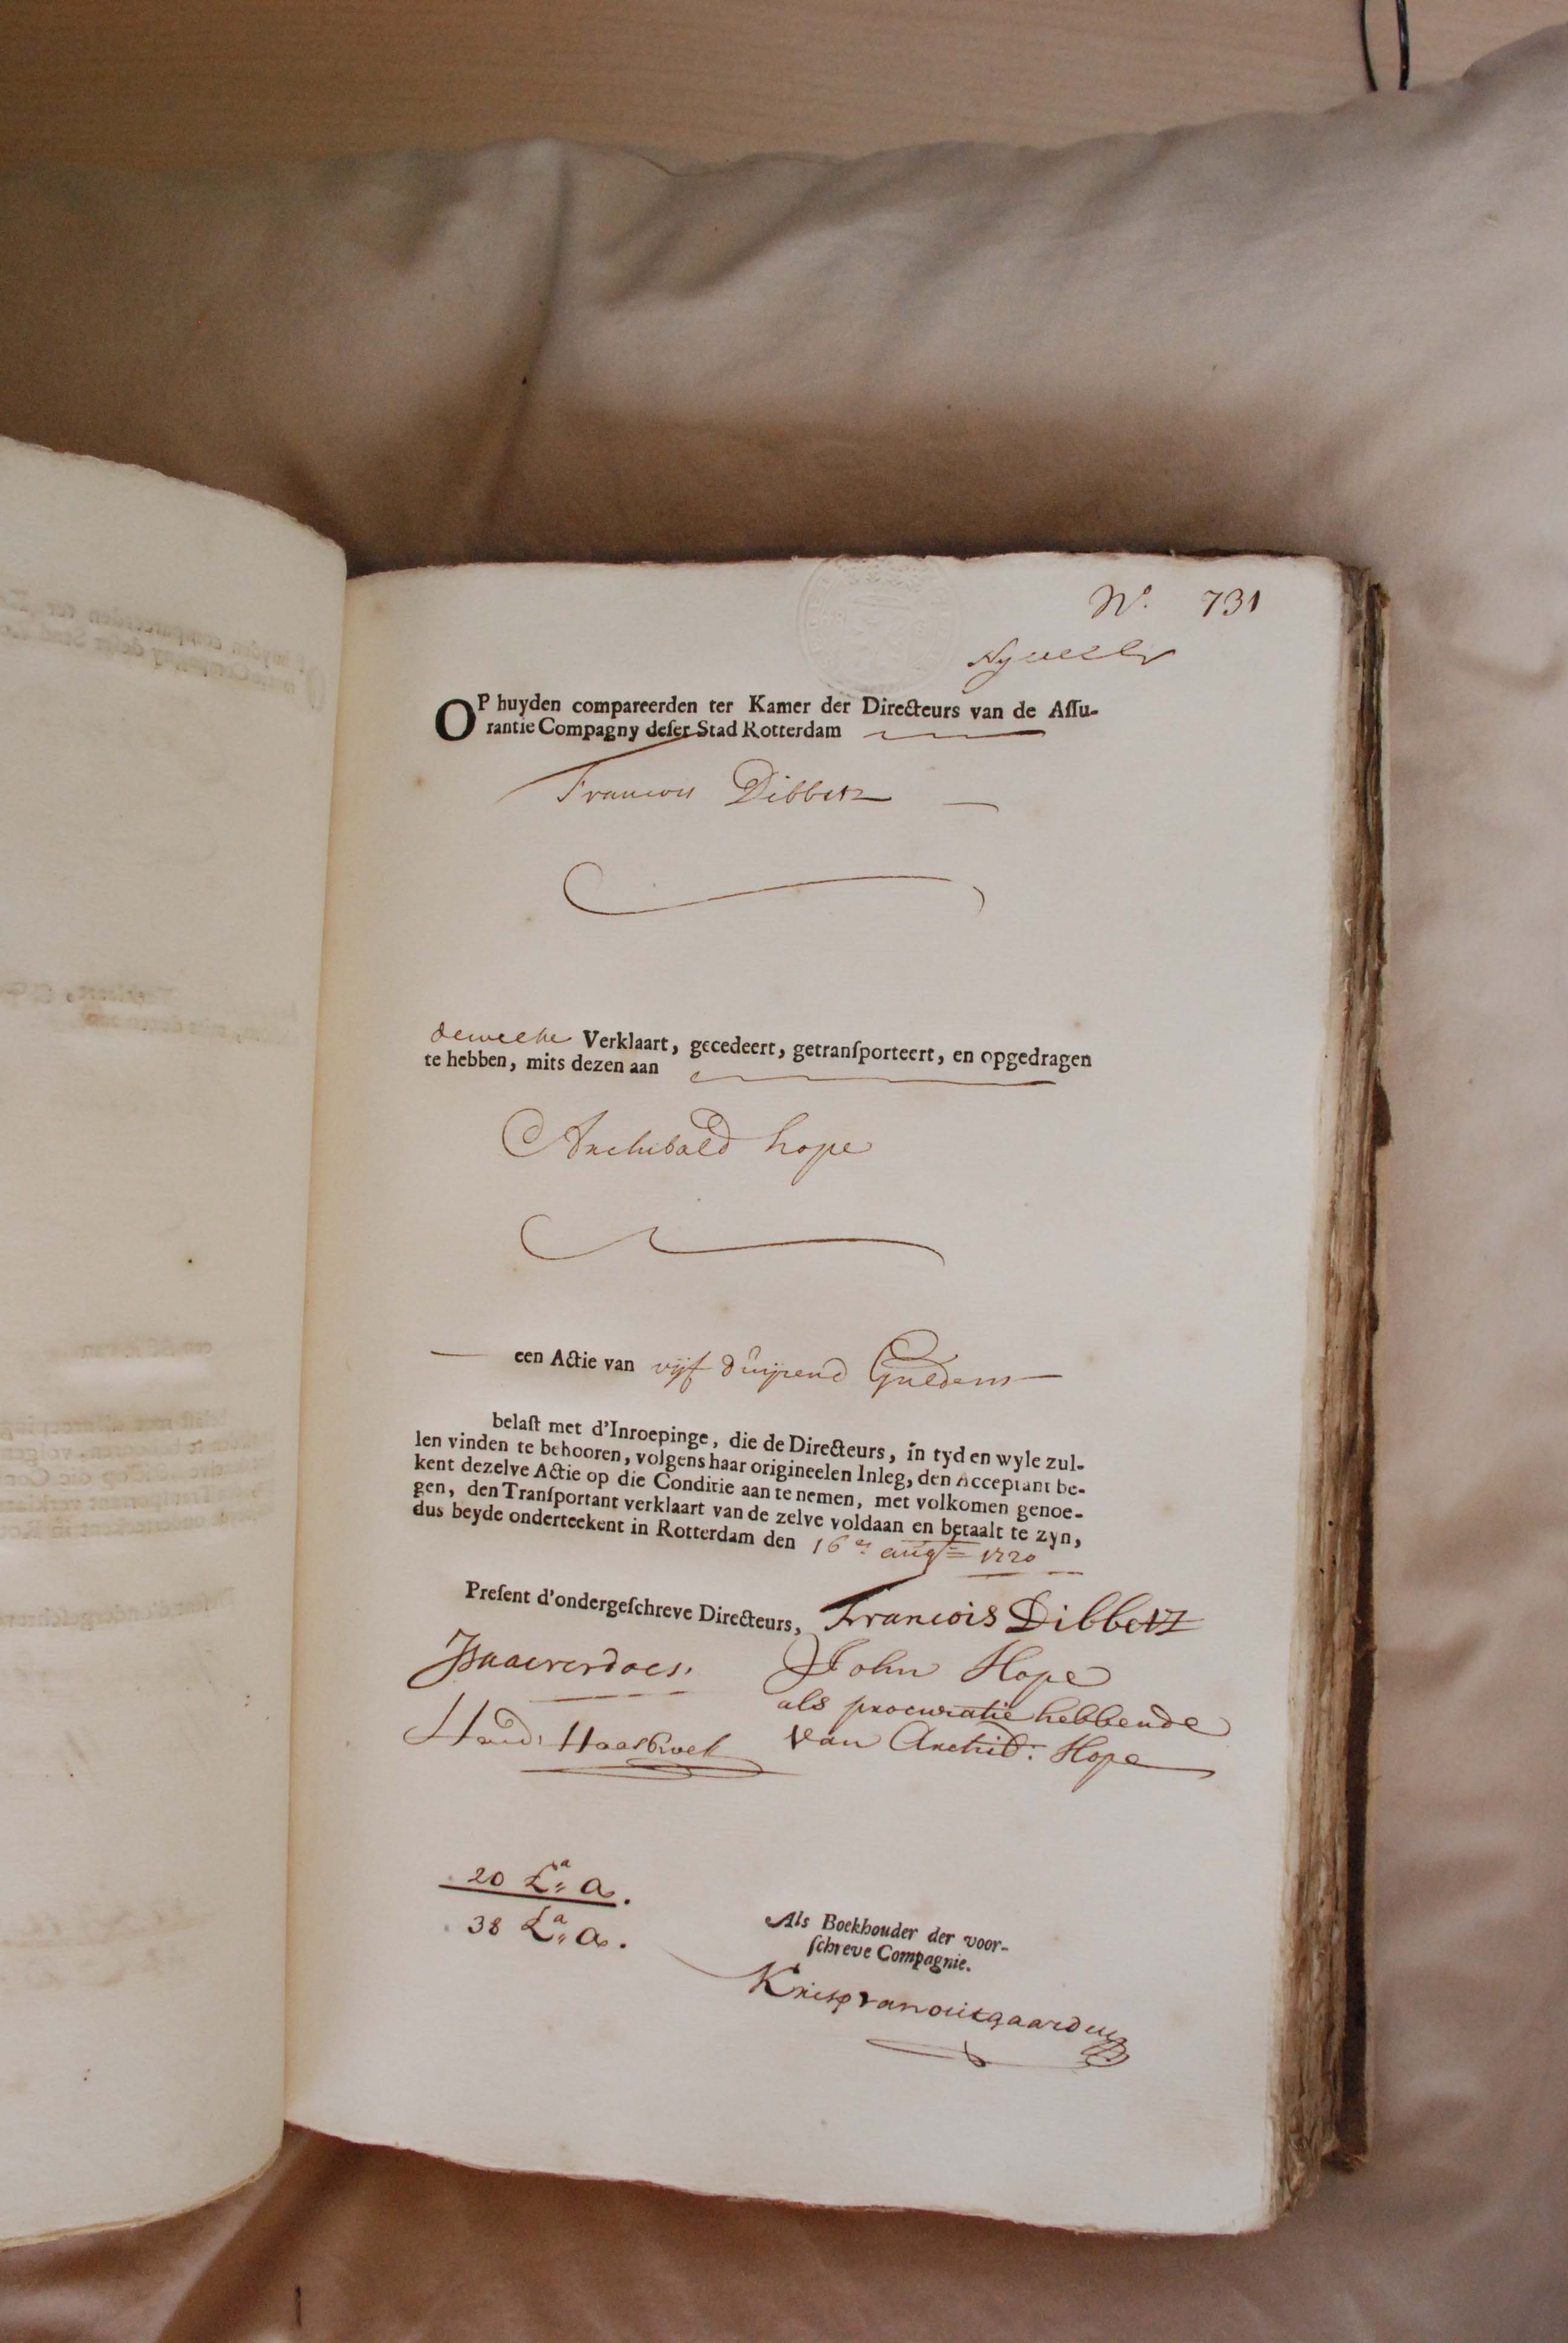 No. 731
OP huyden compareerden ter Kamer der Directeurs van de Assu-
rantie Compagny deser Stad Rotterdam
Francois Dibbetz
dewelke Verklaart, gecedeert, getransporteert, en opgedragen
te hebben, mits dezen aan
Archibald hope
een Actie van vijf duijsend Guldens
belast met d'Inroepinge, die de Directeurs, in tyd en wyle zul-
len vinden te behooren, volgens haar origineelen Inleg, den Acceptant be-
kent dezelve Actie op die Conditie aan te nemen, met volkomen genoe-
gen, den Transportant verklaart van de zelve voldaan en betaalt te zyn,
dus beyde onderteekent in Rotterdam den 16en augt 1720
Present d'ondergeschreve Directeurs, Francois Dibbetz
John Hope
als procuratie hebbende
van Archib: Hope
20 La a.
38 La a.
Als Boekhouder der voor-
schreve Compagnie.